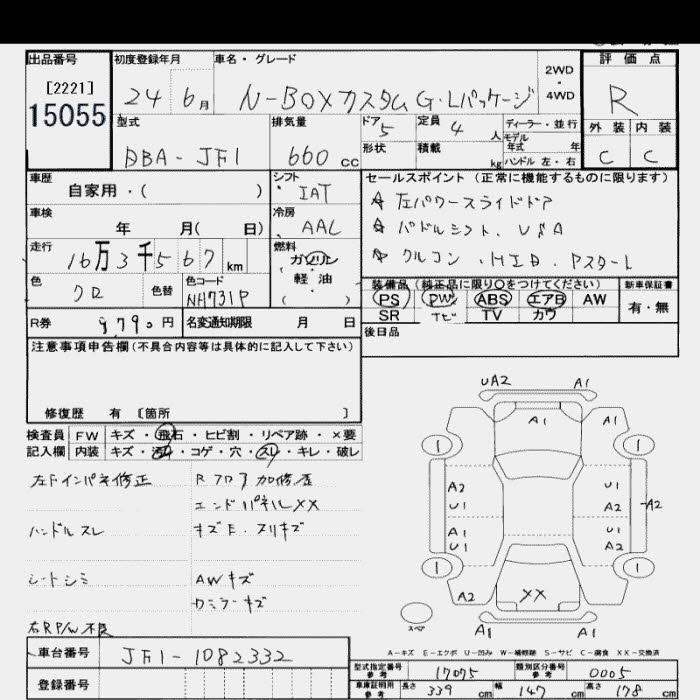 出品番号
[2221]
15055
初度登録年月
24 6月
車名・グレード
N-BOXカスタム G・Lパッケージ
2WD
・
4WD
評価点
R
外装 内装
C C
型式
DBA-JF1
排気量
660 cc
ドア 5
形状
定員 4 人
積載 kg
ディーラー・並行
モデル
年式 年
ハンドル 左・右
車歴
自家用・( )
シフト
IAT
車検
年 月( 日)
冷房
AAC
走行
16万3千567 km
燃料
ガソリン
軽・油
( )
色
クロ
色替
色コード
NH731P
R券 9790円
名変通知期限 月 日
セールスポイント(正常に機能するものに限ります)
☆ 左パワースライドドア
☆ パドルシフト、USA
☆ クルコン、HID、Pスタート
装備品(純正品に限り○をつけてください)
PS PW ABS エアB AW
SR TV カワ
ナビ
新車保証書
有・無
後日品
注意事項申告欄(不具合内容等は具体的に記入して下さい)
修復歴 有 〔箇所 〕
検査員
記入欄
FW キズ・飛石・ヒビ割・リペア跡・×要
内装 キズ・汚れ・コゲ・穴・スレ・キレ・破レ
左Fインパネ修正
Rフロア加修歴
エンドパネルXX
ハンドルスレ
キズE、ヌリキズ
シートシミ
AWキズ
Dミラーキズ
右RP/W不良
UA2 A1
A1 A1
1 1
A2 U1
U1 A2 A2
A1 U1
U1 A2
1 1
A2 XX A1
A1
スペア
A-キズ E-エクボ U-凹み W-補修跡 S-サビ C-腐食 XX-交換済
車台番号
JF1-1082332
登録番号
型式指定番号
参考
17075
類別区分番号
参考
0005
車庫証明用
参考
長さ 339 cm
幅 147 cm
高さ 178 cm